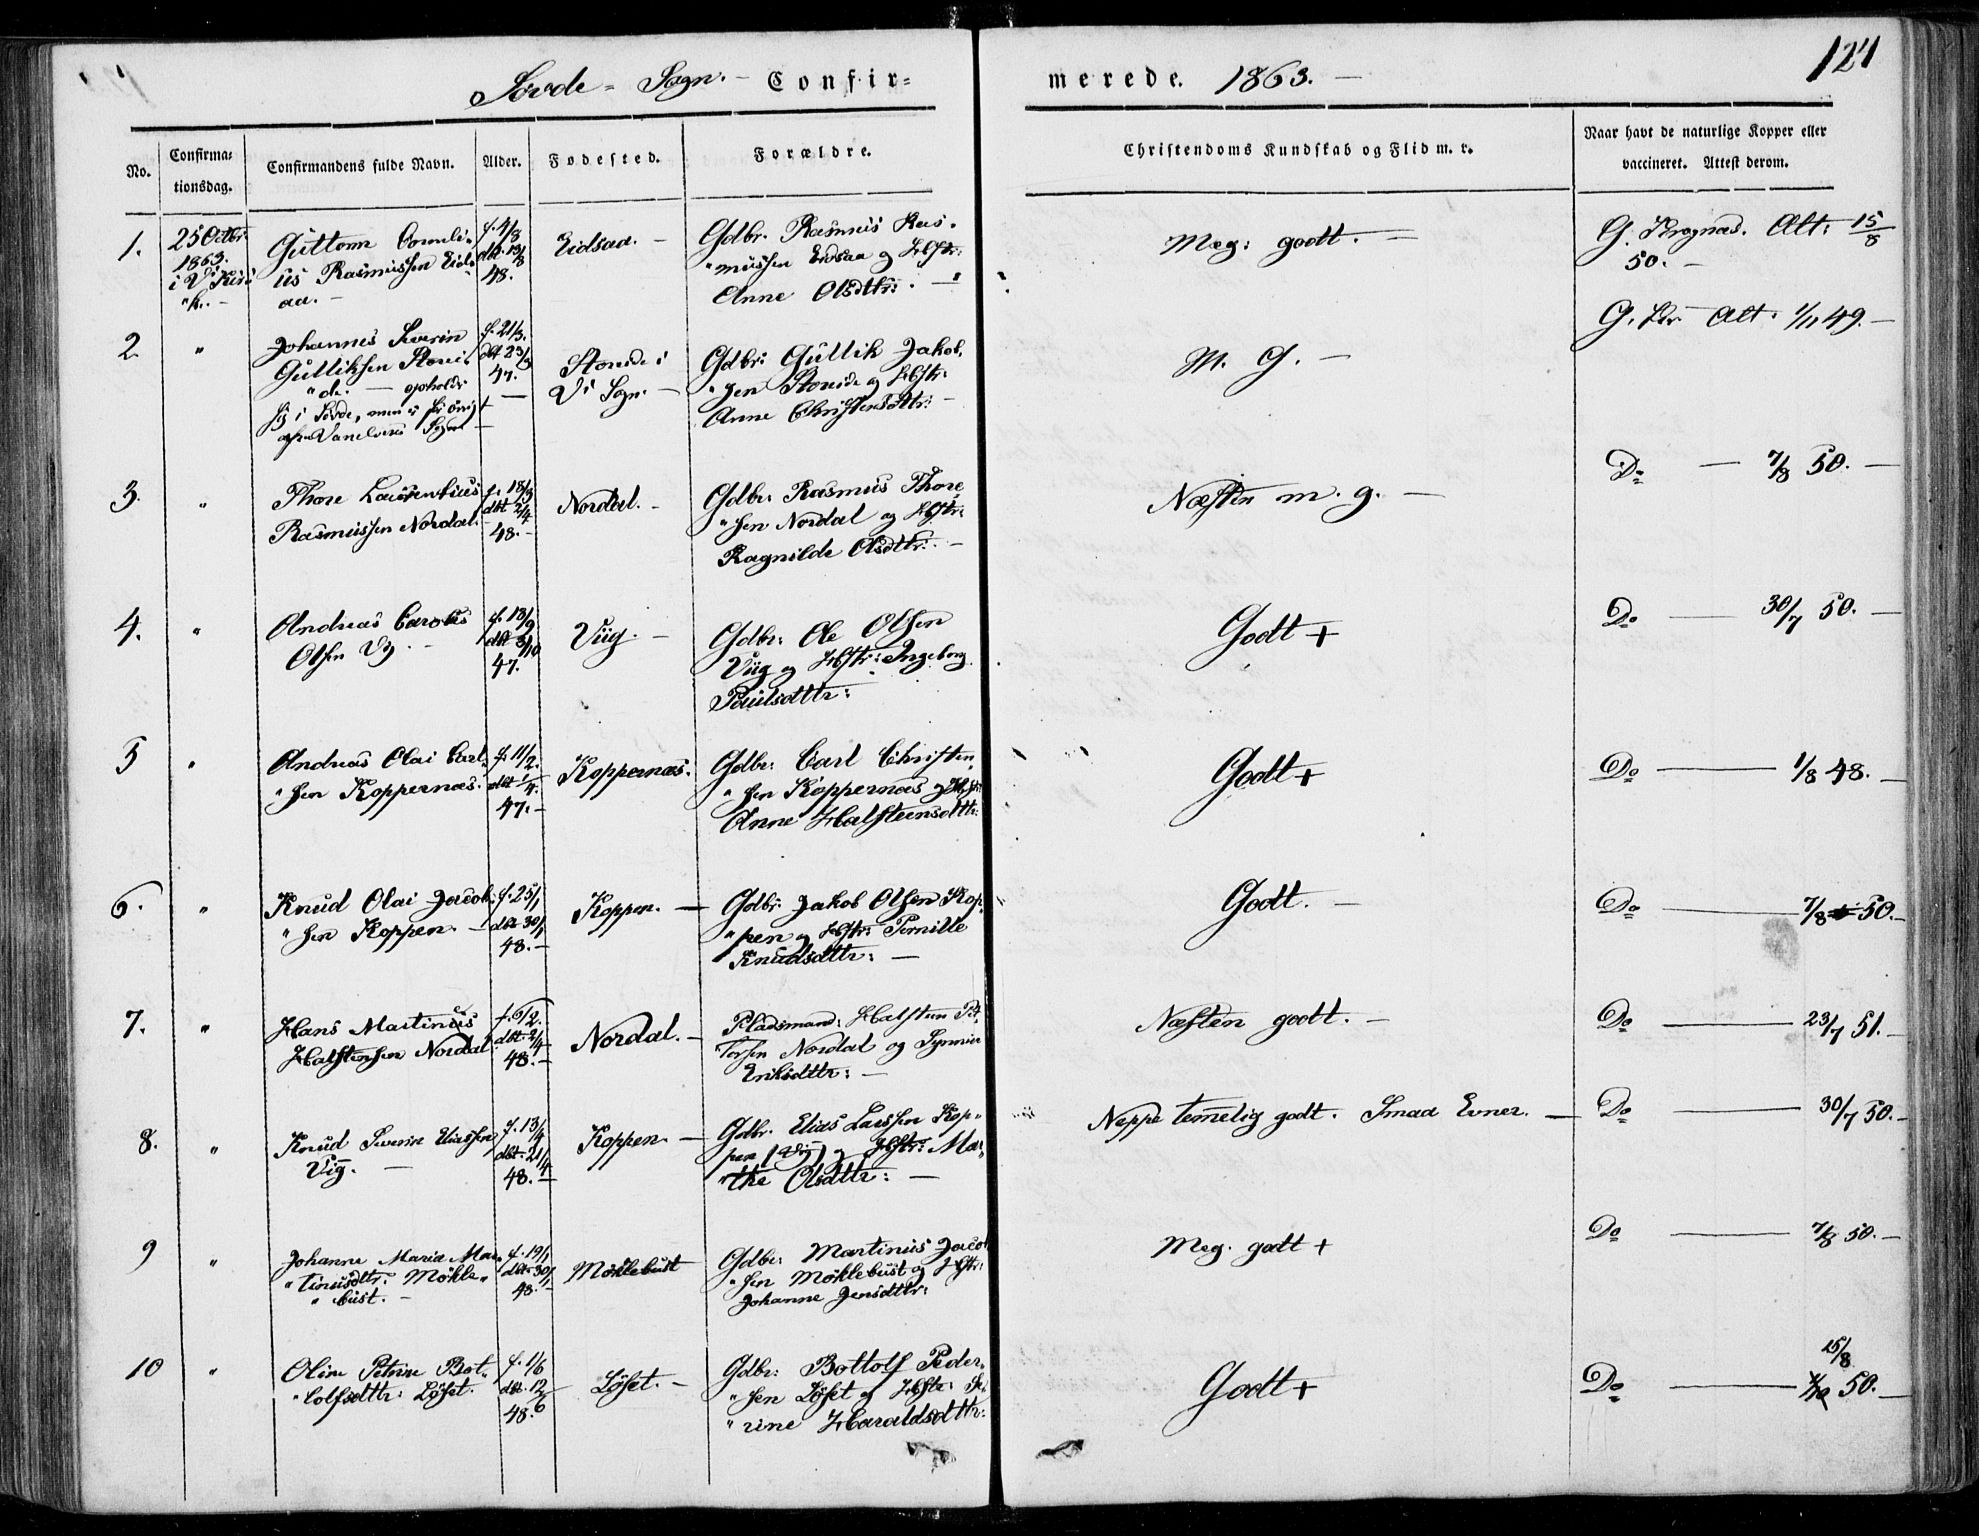 Søvde - Sogn. - Confir=
merede. 1863. -
124
No.
Confirma:
tionsdag.
Confirmandens fulde Navn.
Alder.
Fødested.
Forældre.
Christendoms Kundskab og Flid m. v.
Naar havt de naturlige Kopper eller
vaccineret. Attest derom.
1.
25 Octbr:
1863.
i V: Kir:
"k. -
Guttorm Corneli"
us Rasmussen Eids"
aa. -
f. 4/8
dbt 13/8
48.
Eidsaa. -
Gdbr. Rasmus Ras"
"mussen Eidsaa og Hstr:
Anne Olsdttr: -
Meg: godt. -
G. Krognæs. Att: 15/8
50. -
2.
"
Johannes Severin
Gulliksen Stoue"
"de. - opholdt
sig i Søvde, men er for øvrigt
af Vanelvens Sogn -
f. 21/3.
dbt 23/3
47.
Stouede i
V: Sogn. -
Gdbr: Gullik Jakob"
"sen Stouede og Hstr:
Anne Christensdttr: -
M. G. -
G. Att: 1/11 49. -
3.
"
Thore Laurentius
Rasmussen Nordal. -
f. 18/3
dbt 2/4
48. -
Nordal. -
Gdbr: Rasmus Thore"
"sen Nordal og Hstr:
Ragnilde Olsdttr: -
Næsten m. g. -
Do - 7/8 50. -
4.
"
Andreas Carolus
Olsen Vig. -
f. 13/9
dbt 3/10
47.
Viig. -
Gdbr: Ole Olsen
Viig og Hstr: Ingeborg
Paulsdttr:
Godt +
Do - 30/7 50. -
5
"
Andreas Olai Carl"
"sen Koppernæs.
f. 11/2.
dbt 1/4.
47. -
Koppernæs.
Gdbr: Carl Christen"
"sen Koppernæs og Hstr:
Anne Halsteensdttr:
Godt +
Do - 1/8 48. -
6.
"
Knud Olai Jacob"
"sen Koppen. -
f. 25/1
dbt 30/1
48. -
Koppen. -
Gdbr: Jakob Olsen Kop"
"pen og Hstr: Pernille
Knudsdttr: -
Godt. -
Do - 7/8 50. -
7.
"
Hans Martinus
Halstensen Nordal
f. 6/2.
dbt 2/4
48. -
Nordal. -
Pladsmand: Halsteen Pet"
"tersen Nordal og
Eriksdttr: -
Næsten godt. -
Do - 23/7 51. -
8.
"
Knud Severin Eliassen
Vig. -
f. 13/4
dbt. 21/4
48. -
Koppen. -
Gdbr. Elias Larssen Kop"
pen (Vig) og Hstr: Ma"
"the Olsdttr: -
Neppe temmelig godt. Smaa Evner. -
Do - 30/7 50. -
9
"
Johanne Maria Mar"
"tinusdttr: Møkle"
"bust. -
f. 19/1
dbt 30/1
48. -
Møklebust
Gdbr: Martinus Jacob
"sen Møklebust og Hstr:
Johanne Jensdttr:
Meg. godt +
Do - 7/8 50. -
10
"
Oline Petrine Bot"
"tolfsdttr: Løset.
f. 1/6
dbt. 12/6
48.
Løset. -
Gdbr: Bottolf Peder"
"sen Løset og Hstr: Se"
"rine Haraldsdttr:
Godt +
15/8
Do - 50. -